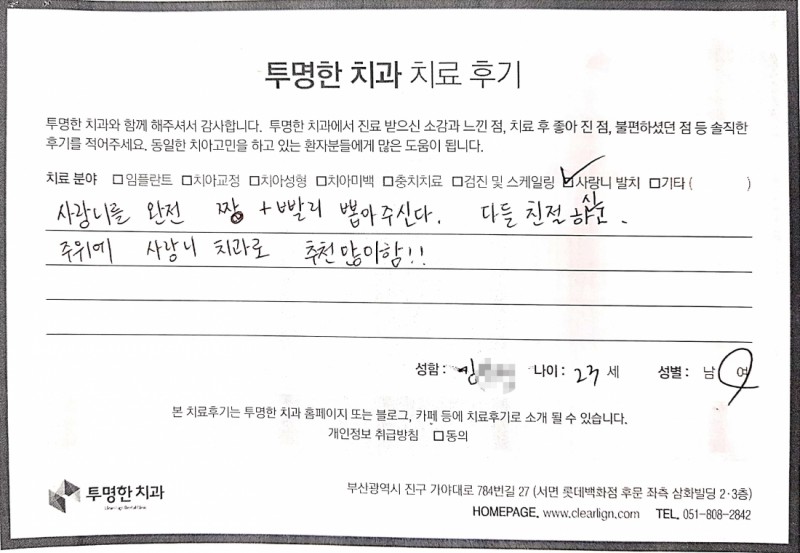 투명한 치과 치료 후기
투명한 치과와 함께 해주셔서 감사합니다. 투명한 치과에서 진료 받으신 소감과 느낀 점, 치료 후 좋아 진 점, 불편하셨던 점 등 솔직한
후기를 적어주세요. 동일한 치아고민을 하고 있는 환자분들에게 많은 도움이 됩니다.
치료 분야 □임플란트 □치아교정 □치아성형 □치아미백 □충치치료 □검진 및 스케일링 ☑사랑니 발치 □기타 ( )
사랑니를 완전 짱 +빨리 뽑아주신다. 다들 친절하시고.
주위에 사랑니 치과로 추천많이함!!
성함: 김 나이: 23 세 성별: 남 여
본 치료후기는 투명한 치과 홈페이지 또는 블로그, 카페 등에 치료후기로 소개 될 수 있습니다.
개인정보 취급방침 □동의
투명한 치과
부산광역시 진구 가야대로 784번길 27 (서면 롯데백화점 후문 좌측 삼화빌딩 2·3층)
HOMEPAGE. www.clearlign.com TEL. 051-808-2842